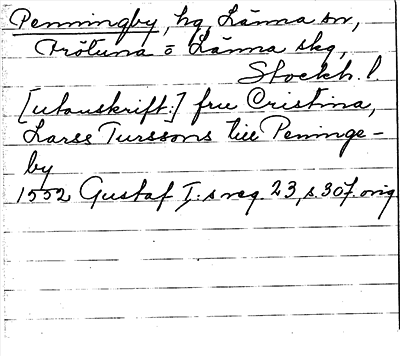 Penningby, hg, Länna sn,
Frötuna o Länna skg,
Stockh. l.
[utanskrift:] fru Cristina,
Larss Turssons till Peninge-
by
1552 Gustaf I:s reg. 23, s. 307. orig.